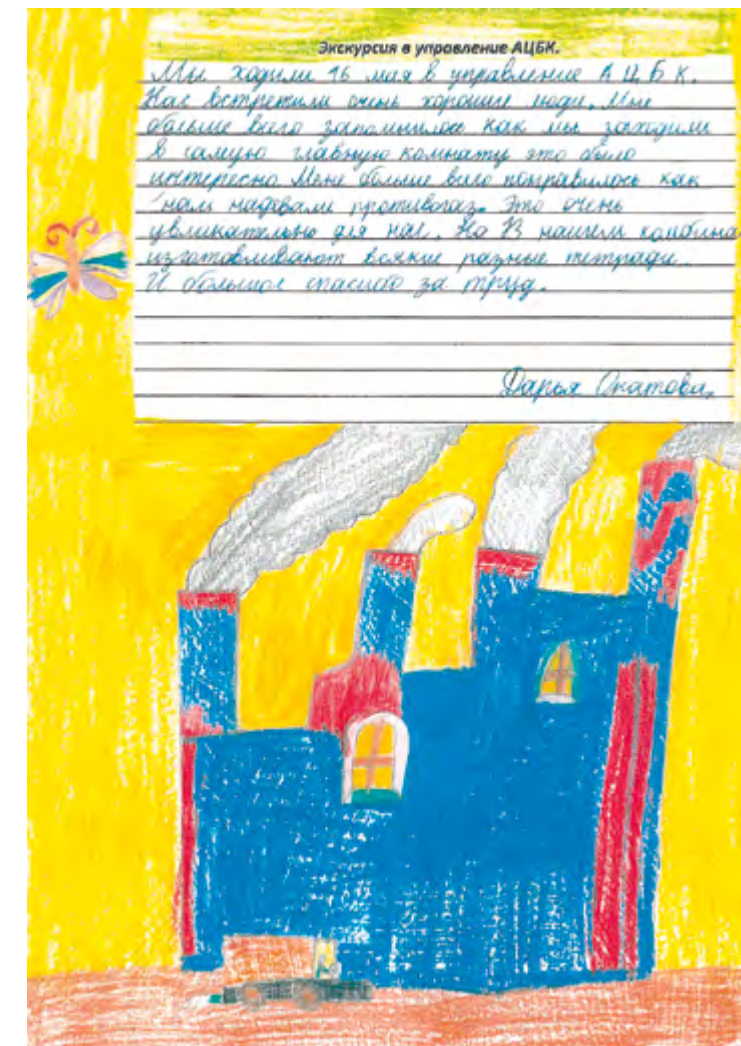 Экскурсия в управление АЦБК.
Мы ходили 16 мая в управление А Ц Б К.
Нас встретили очень хорошие люди. Мне
больше всего запомнилось как мы заходили
в самую главную комнату это было
интересно. Мене больше всего понравилось как
нам надевали противогаз. Это очень
увлекательно для нас. На В нашем комбина
изготавливают всякие разные тетради.
И большое спасибо за труд.
Дарья Окатова.